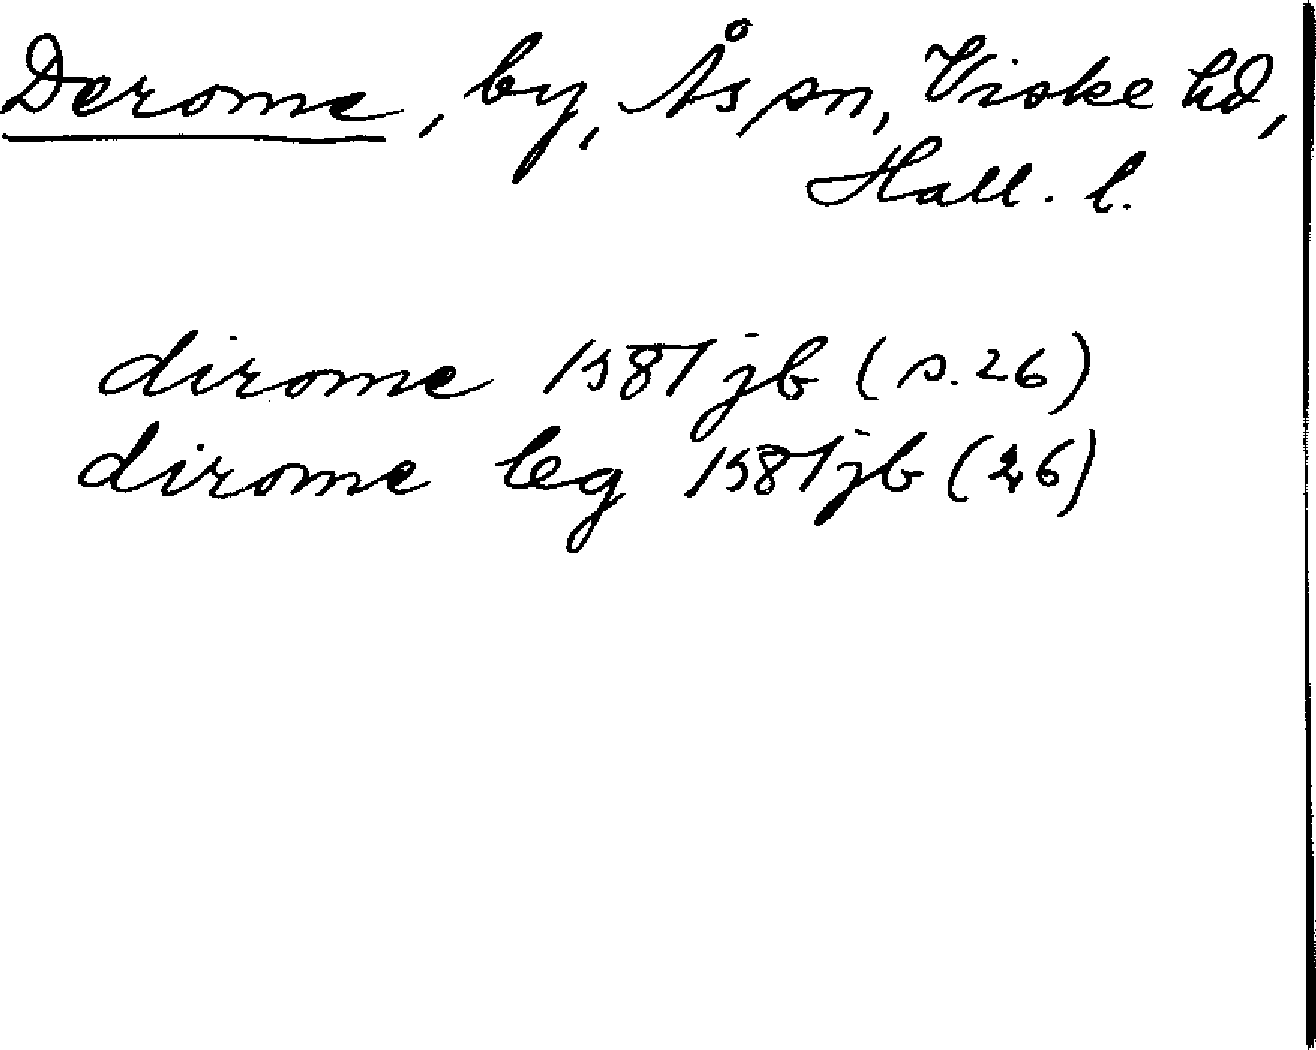 Derome, by, Ås sn, Viske hd,
Hall. l.
dirome 1581 jb (s. 26)
dirome leg 1581 jb (26)